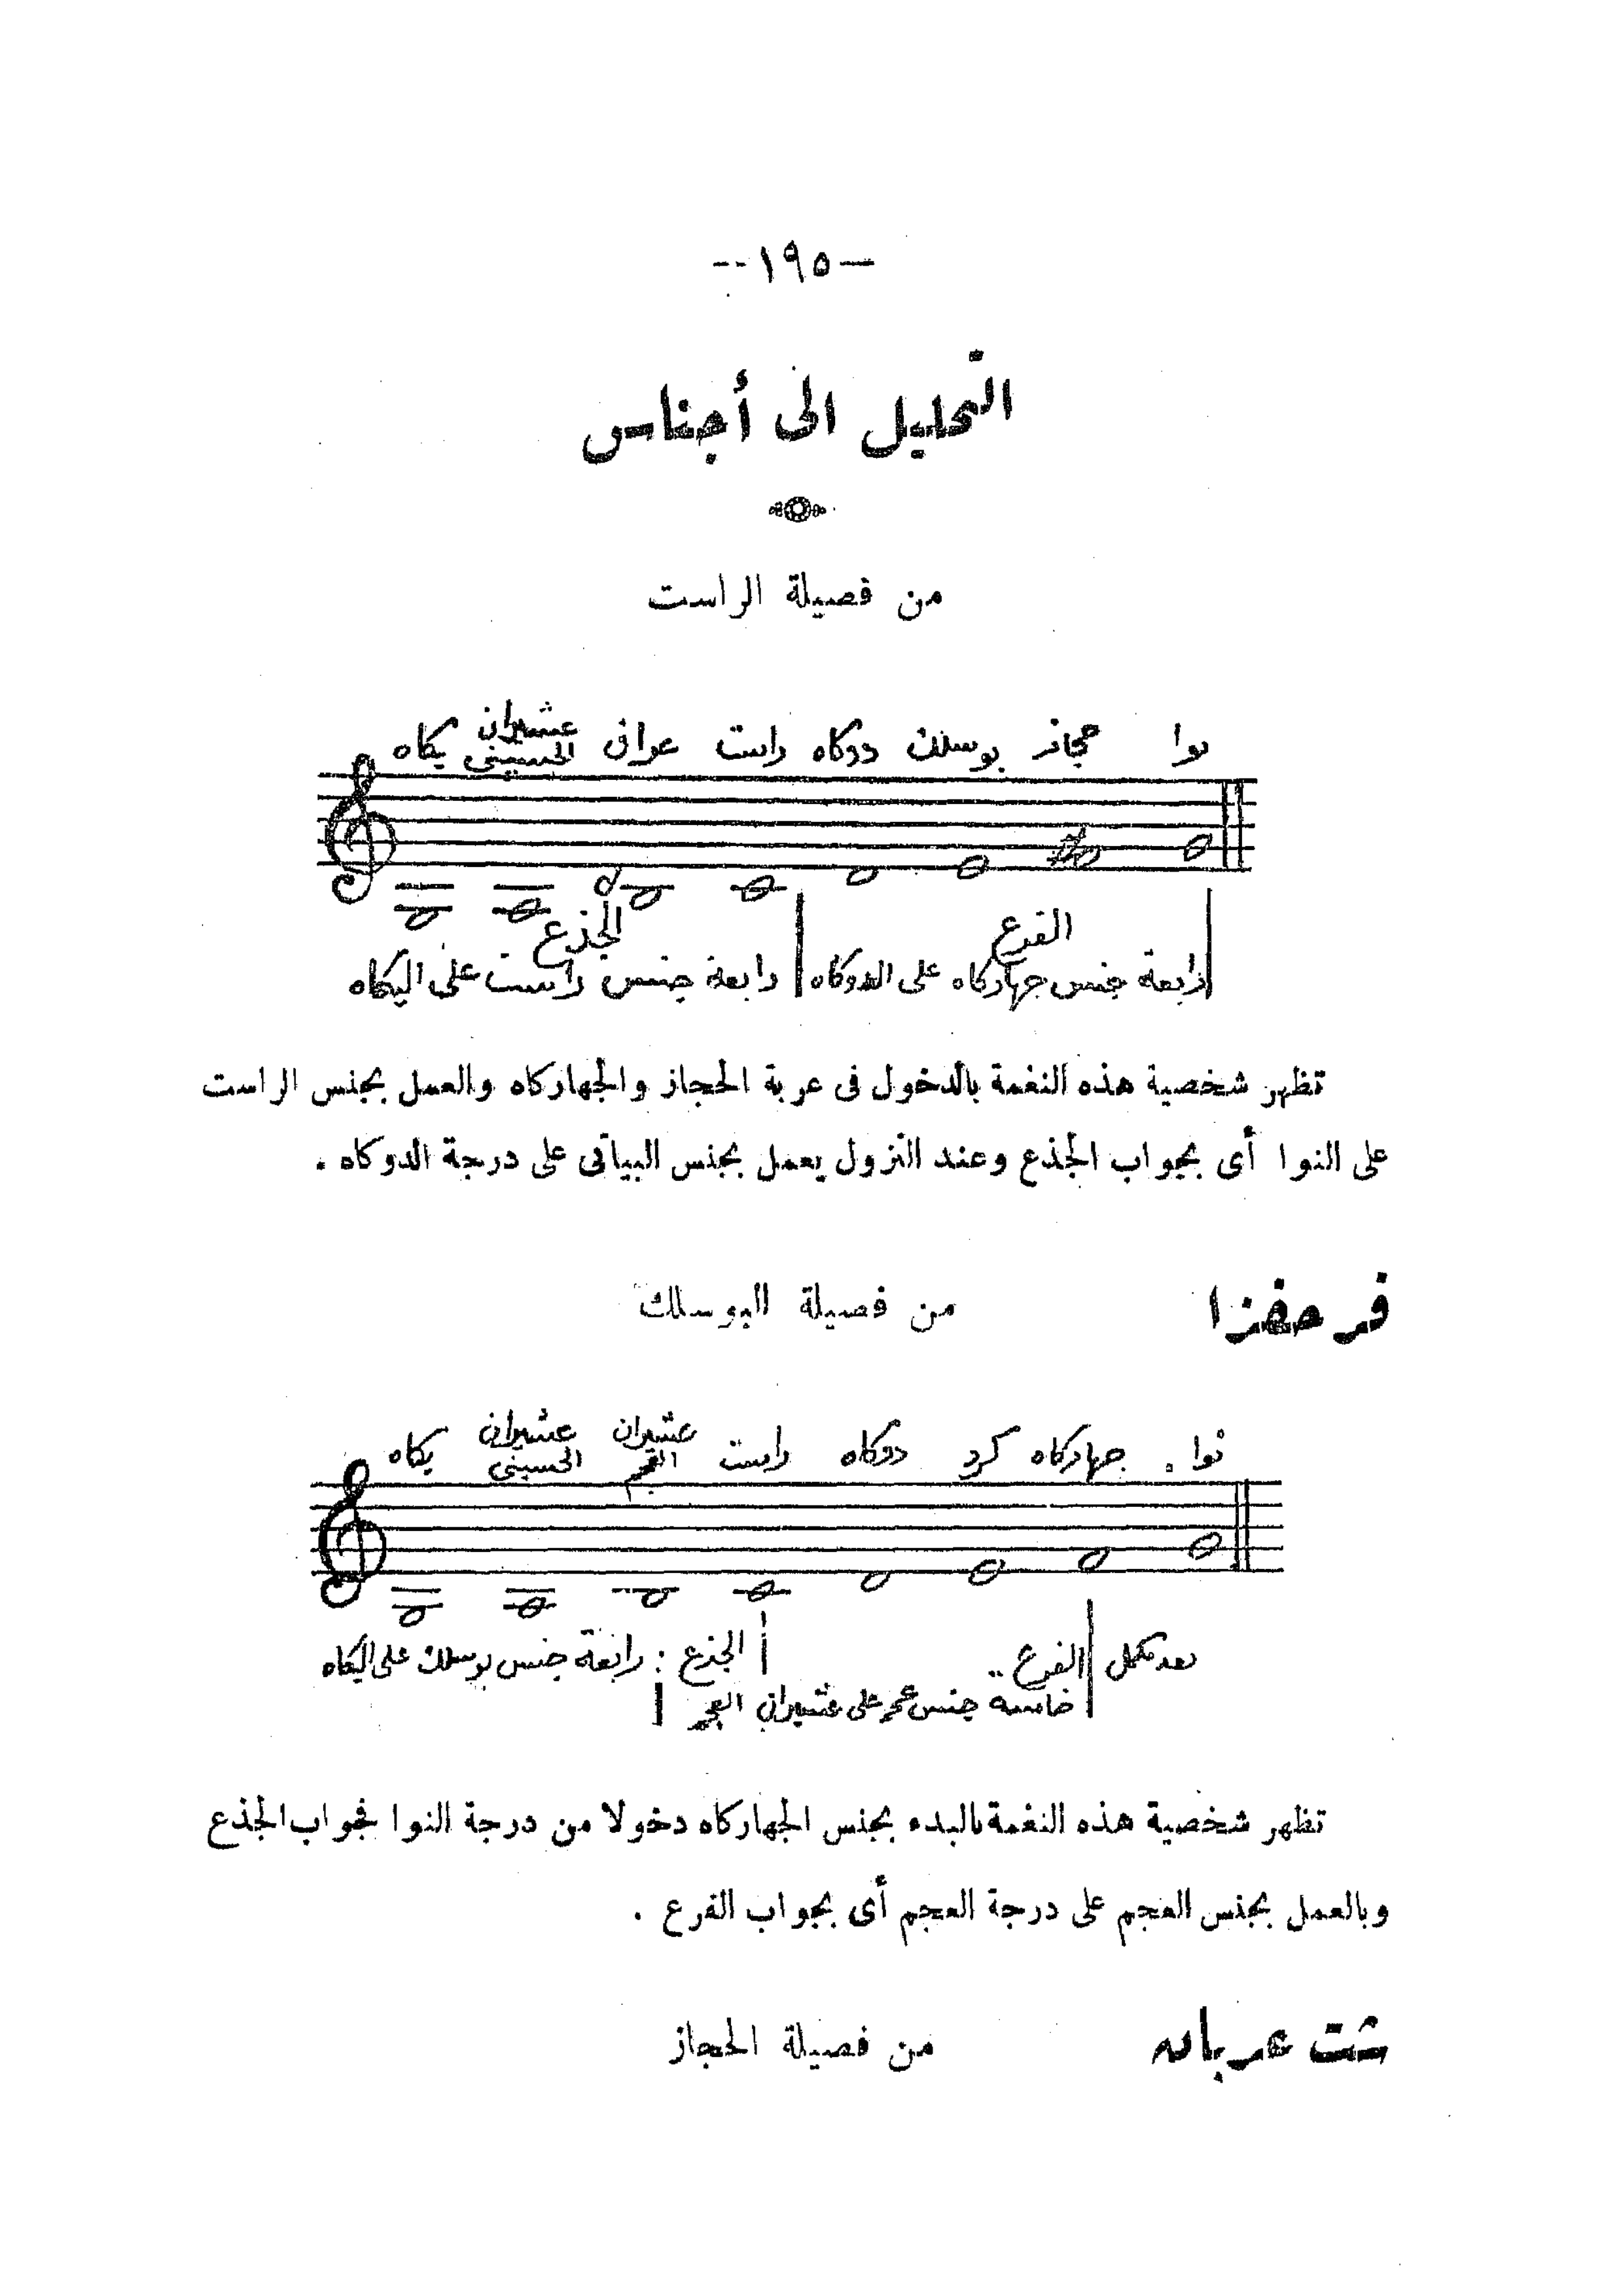 — ١٩٥ —
التحليل الى أجناس
من فصيلة الراست
نوا حجاز بوسلك دوكاه راست عراق عشيران الحسينى يكاه
الفرع الجذع
رابعة جنس جهاركاه على الدوكاه رابعة جنس راست على اليكاه
تظهر شخصية هذه النغمة بالدخول فى عربة الحجاز والجهاركاه والعمل بجنس الراست
على النوا أى بجواب الجذع وعند النزول يعمل بجنس البياتى على درجة الدوكاه .
فرحفزا من فصيلة البوسلك
نوا . جهاركاه كرد دوكاه راست عشيران العجم عشيران الحسينى يكاه
بعد تكمل الفرع .. الجذع : رابعة جنس بوسلك على اليكاه
خامسة جنس عجم على عشيران العجم
تظهر شخصية هذه النغمة بالبدء بجنس الجهاركاه دخولا من درجة النوا فجواب الجذع
وبالعمل بجنس العجم على درجة العجم أى بجواب الفرع .
شت عربان من فصيلة الحجاز